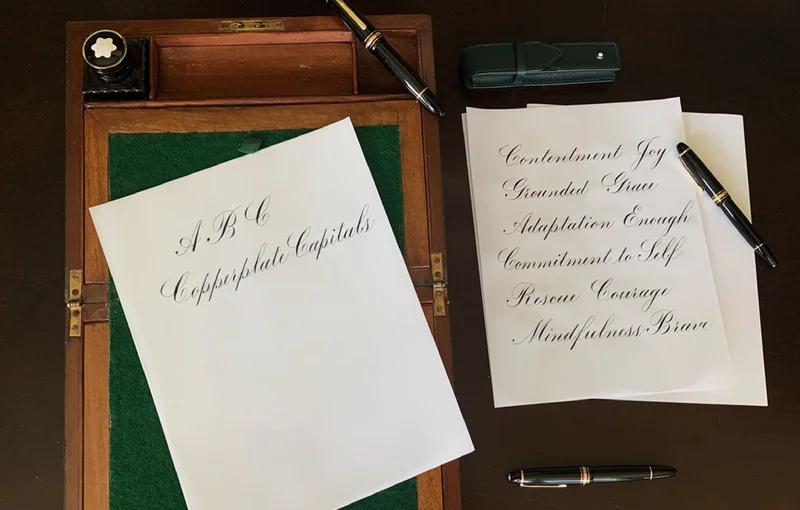 A B C
Copperplate Capitals
Contentment Joy
Grounded Grace
Adaptation Enough
Commitment to Self
Rescue Courage
Mindfulness Brave